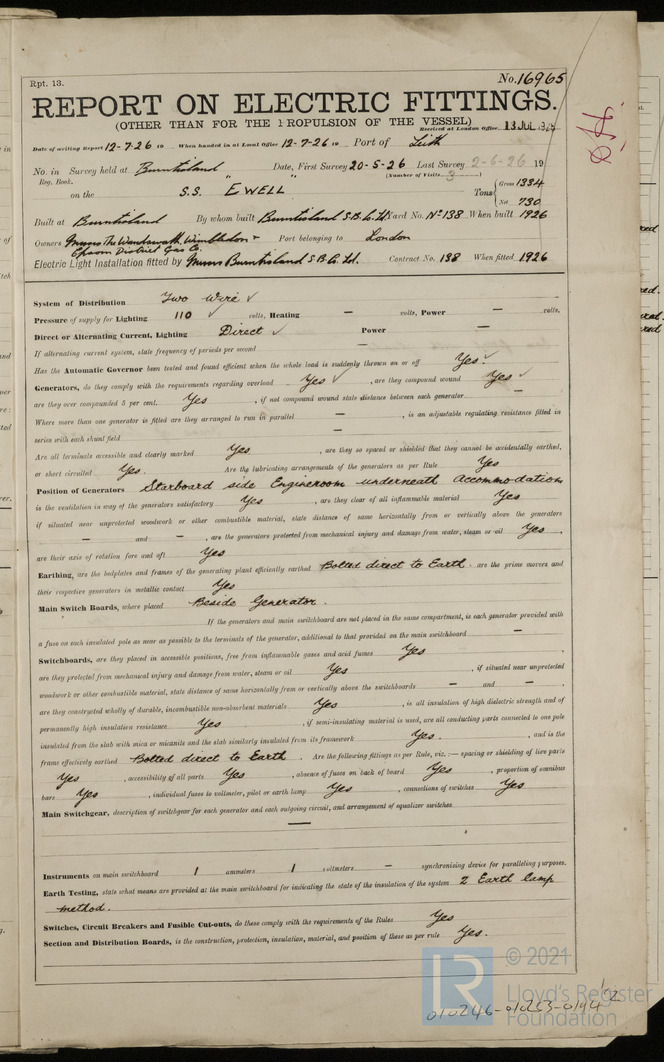 Rpt. 13.
No. 16965
REPORT ON ELECTRIC FITTINGS.
(OTHER THAN FOR THE PROPULSION OF THE VESSEL)
Received at London Office 13 JUL 1926
Date of writing Report 12-7-26 19 When handed in at Local Office 12-7-26 19 Port of Leith
No. in Survey held at Burntisland Date, First Survey 20-5-26 Last Survey 2-6-26 19
Reg. Book. (Number of Visits 3)
on the S.S. EWELL Tons { Gross 1334
Net 730
Built at Burntisland By whom built Burntisland S.B. Co. Ld. Yard No. No 138 When built 1926
Owners Messrs The Wandsworth, Wimbledon + Epsom District Gas Co. Port belonging to London
Electric Light Installation fitted by Messrs Burntisland S.B. Co. Ld. Contract No. 138 When fitted 1926
System of Distribution Two Wire ✓
Pressure of supply for Lighting 110 ✓ volts, Heating — volts, Power — volts.
Direct or Alternating Current, Lighting Direct ✓ Power —
If alternating current system, state frequency of periods per second —
Has the Automatic Governor been tested and found efficient when the whole load is suddenly thrown on or off Yes. ✓
Generators, do they comply with the requirements regarding overload Yes ✓, are they compound wound Yes ✓
are they over compounded 5 per cent. Yes, if not compound wound state distance between each generator —
Where more than one generator is fitted are they arranged to run in parallel —, is an adjustable regulating resistance fitted in
series with each shunt field —
Are all terminals accessible and clearly marked Yes, are they so spaced or shielded that they cannot be accidentally earthed,
or short circuited Yes. Are the lubricating arrangements of the generators as per Rule Yes
Position of Generators Starboard side Engineroom underneath Accommodation
is the ventilation in way of the generators satisfactory Yes, are they clear of all inflammable material Yes
if situated near unprotected woodwork or other combustible material, state distance of same horizontally from or vertically above the generators
— and —, are the generators protected from mechanical injury and damage from water, steam or oil Yes,
are their axis of rotation fore and aft Yes
Earthing, are the bedplates and frames of the generating plant efficiently earthed Bolted direct to Earth are the prime movers and
their respective generators in metallic contact Yes
Main Switch Boards, where placed Beside Generator.
If the generators and main switchboard are not placed in the same compartment, is each generator provided with
a fuse on each insulated pole as near as possible to the terminals of the generator, additional to that provided on the main switchboard —
Switchboards, are they placed in accessible positions, free from inflammable gases and acid fumes Yes,
are they protected from mechanical injury and damage from water, steam or oil Yes, if situated near unprotected
woodwork or other combustible material, state distance of same horizontally from or vertically above the switchboards — and —,
are they constructed wholly of durable, incombustible non-absorbent materials Yes, is all insulation of high dielectric strength and of
permanently high insulation resistance Yes, if semi-insulating material is used, are all conducting parts connected to one pole
insulated from the slab with mica or micanite and the slab similarly insulated from its framework Yes., and is the
frame effectively earthed Bolted direct to Earth. Are the following fittings as per Rule, viz.:— spacing or shielding of live parts
Yes, accessibility of all parts Yes, absence of fuses on back of board Yes, proportion of omnibus
bars Yes, individual fuses to voltmeter, pilot or earth lamp Yes, connections of switches Yes
Main Switchgear, description of switchgear for each generator and each outgoing circuit, and arrangement of equalizer switches
—
Instruments on main switchboard 1 ammeters 1 voltmeters — synchronising device for paralleling purposes.
Earth Testing, state what means are provided at the main switchboard for indicating the state of the insulation of the system 2 Earth lamp
method.
Switches, Circuit Breakers and Fusible Cut-outs, do these comply with the requirements of the Rules Yes
Section and Distribution Boards, is the construction, protection, insulation, material, and position of these as per rule Yes.
© 2021
LR Lloyd's Register
Foundation
010246-010253-0194 1/2